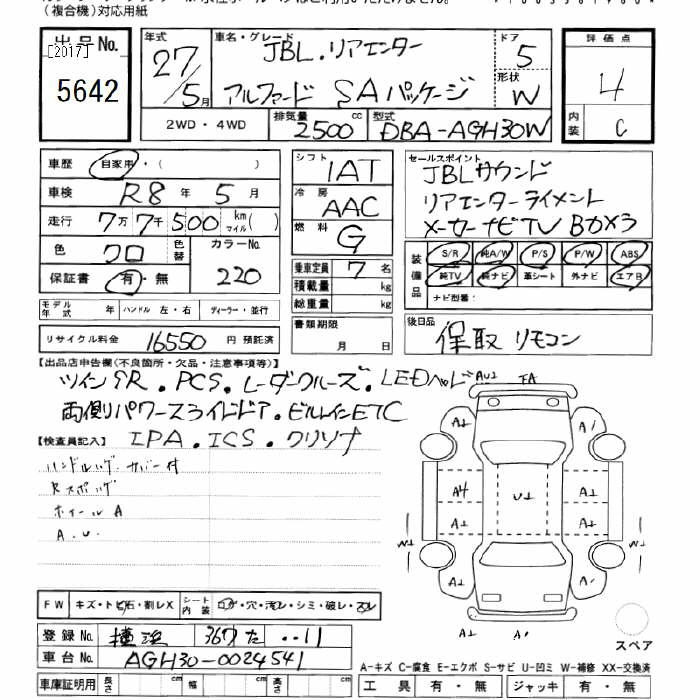 (複合機)対応用紙
出品No.
[2017]
5642
年式
27/5月
車名・グレード
JBL.リアエンター
アルファード SAパッケージ
ドア
5
形状
W
評価点
4
内装
C
2WD・4WD
排気量
2500cc
型式
DBA-AGH30W
車歴
自家用・( )
車検
R8年 5月
走行
7万7千500 km マイル( )
色
クロ
色替
カラーNo.
220
保証書
有・無
モデル年式 年 ハンドル 左・右 ディーラー・並行
リサイクル料金 16550 円 預託済
シフト
IAT
冷房
AAC
燃料
G
乗車定員 7 名
積載量 kg
総重量 kg
書類期限
月 日
セールスポイント
JBLサウンド
リアエンターライメント
メーカーナビTV Bカメラ
装備品
S/R 純A/W P/S P/W ABS
純TV 純ナビ 革シート 外ナビ エアB
ナビ型番:
後日品
保取 リモコン
【出品店申告欄(不良箇所・欠品・注意事項等)】
ツインSR.PCS.レーダークルーズ.LEDヘッド
両側パワースライドドア.ビルトインETC
IPA.ICS.クリソナ
【検査員記入】
ホイールA
A.U.
AU2
FA
A1
A1
A4
A1
A1
A1
U1
W1
W1
A1
A1
A1
A1
FW キズ・トビ石・割レX
シート内装 コゲ・穴・汚レ・シミ・破レ・スレ
登録No. 横浜 367 た ‥11
車台No. AGH30-0024541
車庫証明用 長さ cm 幅 cm 高さ cm
スペア
A-キズ C-腐食 E-エクボ S-サビ U-凹ミ W-補修 XX-交換済
工具 有・無 ジャッキ 有・無